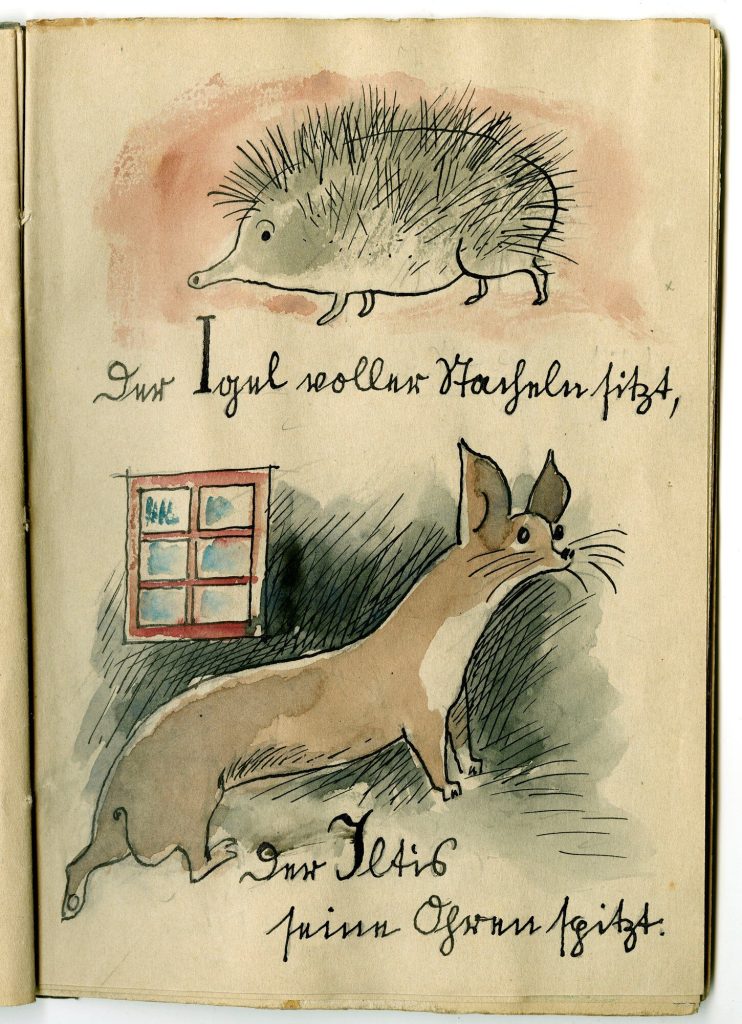 Der Igel voller Stacheln sitzt,
Der Iltis
seine Ohren spitzt.